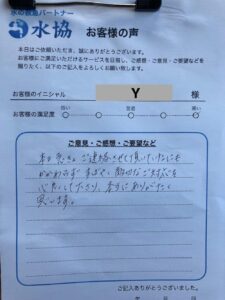 水の救急パートナー
水協 お客様の声
本日はご依頼いただき、誠にありがとうございます。
お客様にご満足いただけるサービスを目指し、ご感想・ご意見・ご要望などを
賜りたく、以下のご記入をよろしくお願い致します。
お客様のイニシャル Y 様
お客様の満足度 低い 普通 高い
ご意見・ご感想・ご要望など
本日 急きょ ご連絡させて頂いていたにも
かかわらず すばやく 親切なご対応を
して下さり、本当にありがたく
思います。
ご記入ありがとうございました。